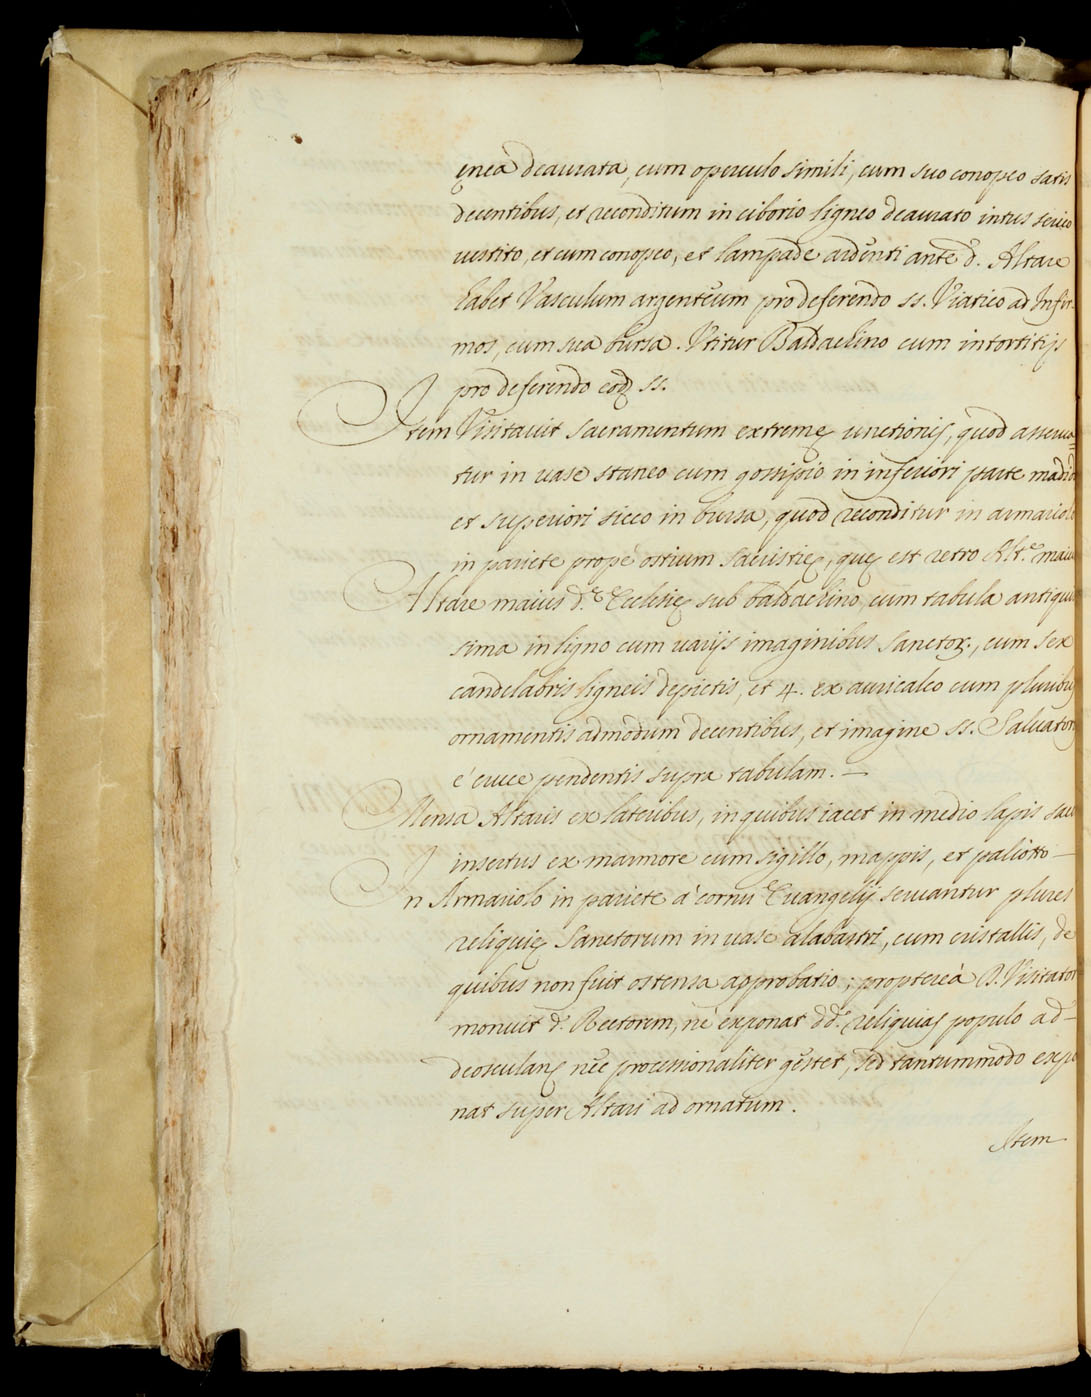 ęnea deaurata, cum operculo simili, cum suo conopeo satis
decentibus, et reconditum in ciborio ligneo deaurato intus serico
vestito, et cum conopeo, et lampade ardenti ante d. Altare
habet Vasculum argenteum pro deferendo ss. Viatico ad Infir-
mos, cum sua bursa. Vtitur Baldachino cum intortitijs
pro deferendo eod ss.
Item Visitavit Sacramentum extremę unctionis, quod asserua=
tur in uase staneo cum gossipio in inferiori parte madid
et superiori sicco in bursa, quod reconditur in armariol
in pariete propè ostium sacristię, quę est retro Alt.e maiu
Altare maius d.ę Ecclesię sub baldachino, cum tabula antiquis
sima in ligno cum varijs imaginibus Sanctoꝝ., cum sex
candelabris ligneis depictis, et 4. ex auricalco cum pluribus
ornamentis admodum decentibus, et imagine ss. Saluator
è cruce pendentis supra tabulam. —
Mensa Altaris ex lateribus, in quibus iacet in medio lapis sac
insertus ex marmore cum sigillo, mappis, et paliotto —
In Armariolo in pariete à cornu Euangelij seruantur plures
reliquię Sanctorum in uase alabastri, cum cristallis, de
quibus non fuit ostensa approbatio; proptereà R. Visitator
monuit d. Rectorem, nè exponat dd. reliquias populo ad-
deosculanꝫ nec processionaliter gestet, sed tantummodo expo
nat super Altari ad ornatum.
Item